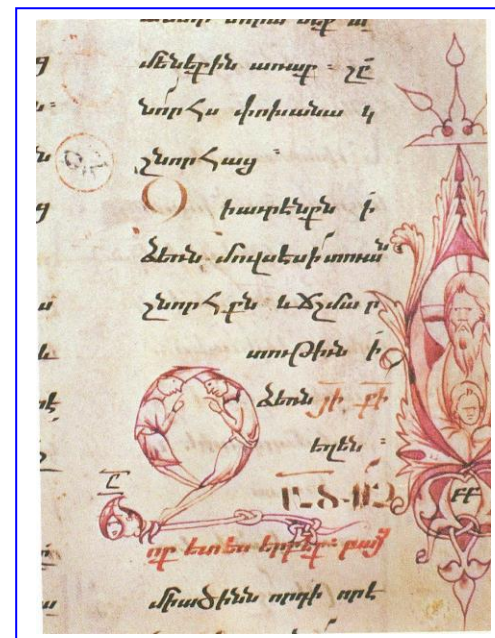 նորա մեք ա
մենեքին առաք ։ շը
նորհս փոխանա կ
շնորհաց ։
Զ իաւրէնքն ի
ձեռն մովսեսի տուան
շնորհքն և ճշմար
տութիւն ի
ձեռն յի քի
եղեն ։
Զ ԱԾ ՈՉ
ոք ետես երբէք ։ բայց
միածինն որդի որ է